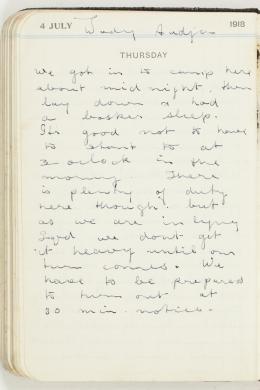 4 JULY Wady Audja 1918
THURSDAY
We got in to camp here
about mid night, then
lay down & had
a bosker sleep.
Its good not to have
to stand to at
3 oclock in the
morning. There
is plenty of duty
here though. but
as we are in lying
we dont get
it heavy until our
turn comes. We
have to be prepared
to turn out at
30 min. notice.